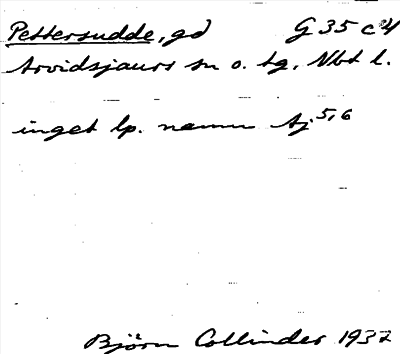 Pettersudde, gd G 35 c 4
Arvidsjaurs sn o. tg, Nbt l.
inget lp. namn Aj 5,6
Björn Collinder 1937